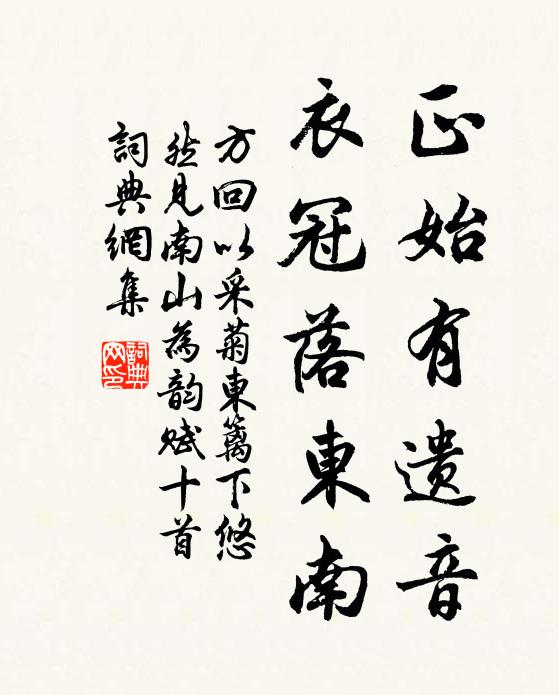 正始有遺音
衣冠落東南
方回以采菊東籬下悠
然見南山為韵賦十首
詞典網集
詞典
网印